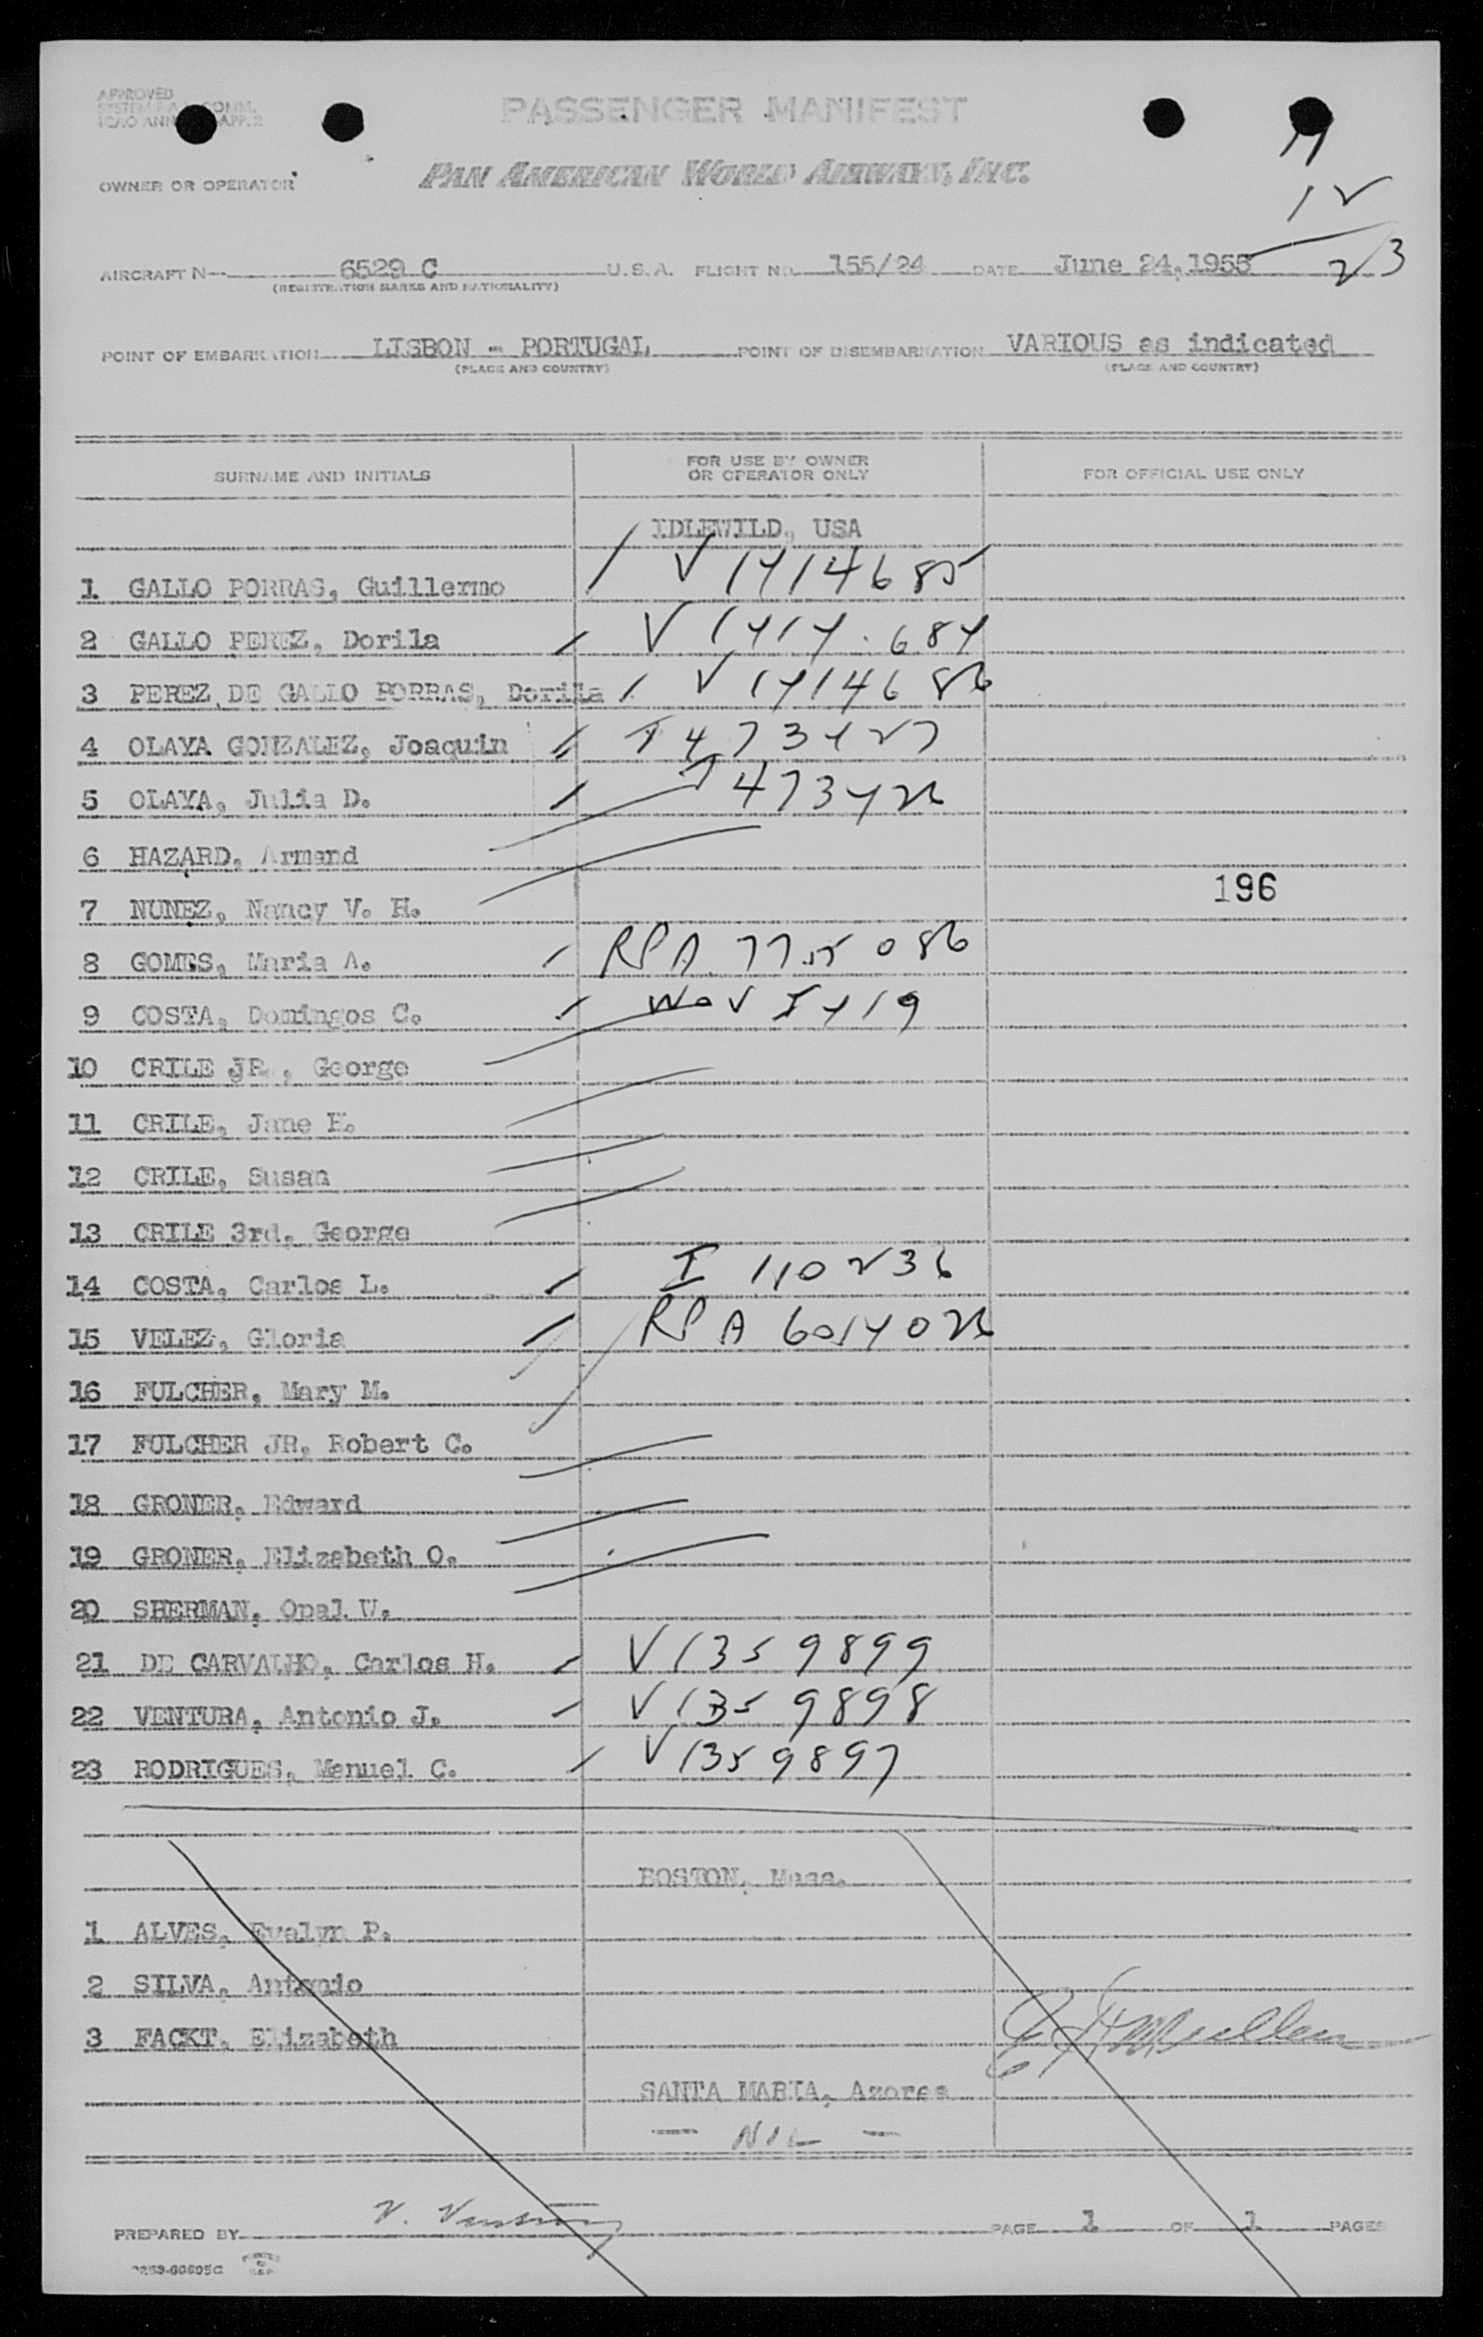 APPROVED
PASSENGER MANIFEST
OWNER OR OPERATOR
PAN AMERICAN WORLD AIRWAYS, INC.
12
23
AIRCRAFT N- 6529 C U.S.A. FLIGHT NO. 155/24 DATE June 24, 1955
(REGISTRATION MARKS AND NATIONALITY)
POINT OF EMBARKATION LISBON - PORTUGAL POINT OF DISEMBARKATION VARIOUS as indicated
(PLACE AND COUNTRY) (PLACE AND COUNTRY)
SURNAME AND INITIALS FOR USE BY OWNER OR OPERATOR ONLY FOR OFFICIAL USE ONLY
IDLEWILD, USA
1 GALLO PORRAS, Guillermo V 1414685
2 GALLO PEREZ, Dorila V 1414684
3 PEREZ DE GALLO PORRAS, Dorila V 1414686
4 OLAYA GONZALEZ, Joaquin T 473427
5 OLAYA, Julia D. T 473426
6 HAZARD, Armand
7 NUNEZ, Nancy V. H. 196
8 GOMES, Maria A. RPA 775086
9 COSTA, Domingos C.
10 CRILE JR., George
11 CRILE, Jane H.
12 CRILE, Susan
13 CRILE 3rd, George
14 COSTA, Carlos L. I 110236
15 VELEZ, Gloria RPA 6014026
16 FULCHER, Mary M.
17 FULCHER JR, Robert C.
18 GRONER, Edward
19 GRONER, Elizabeth O.
20 SHERMAN, Opal W.
21 DE CARVALHO, Carlos H. V 1359899
22 VENTURA, Antonio J. V 1359898
23 RODRIGUES, Manuel C. V 1359897
BOSTON, Mass.
1 ALVES, Evalyn P.
2 SILVA, Antonio
3 FACKT, Elizabeth
SANTA MARIA, Azores
— NIL —
PREPARED BY V. Ventura PAGE 1 OF 1 PAGES